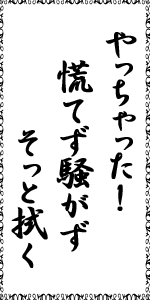 やっちゃった！
慌てず騒がず
そっと拭く